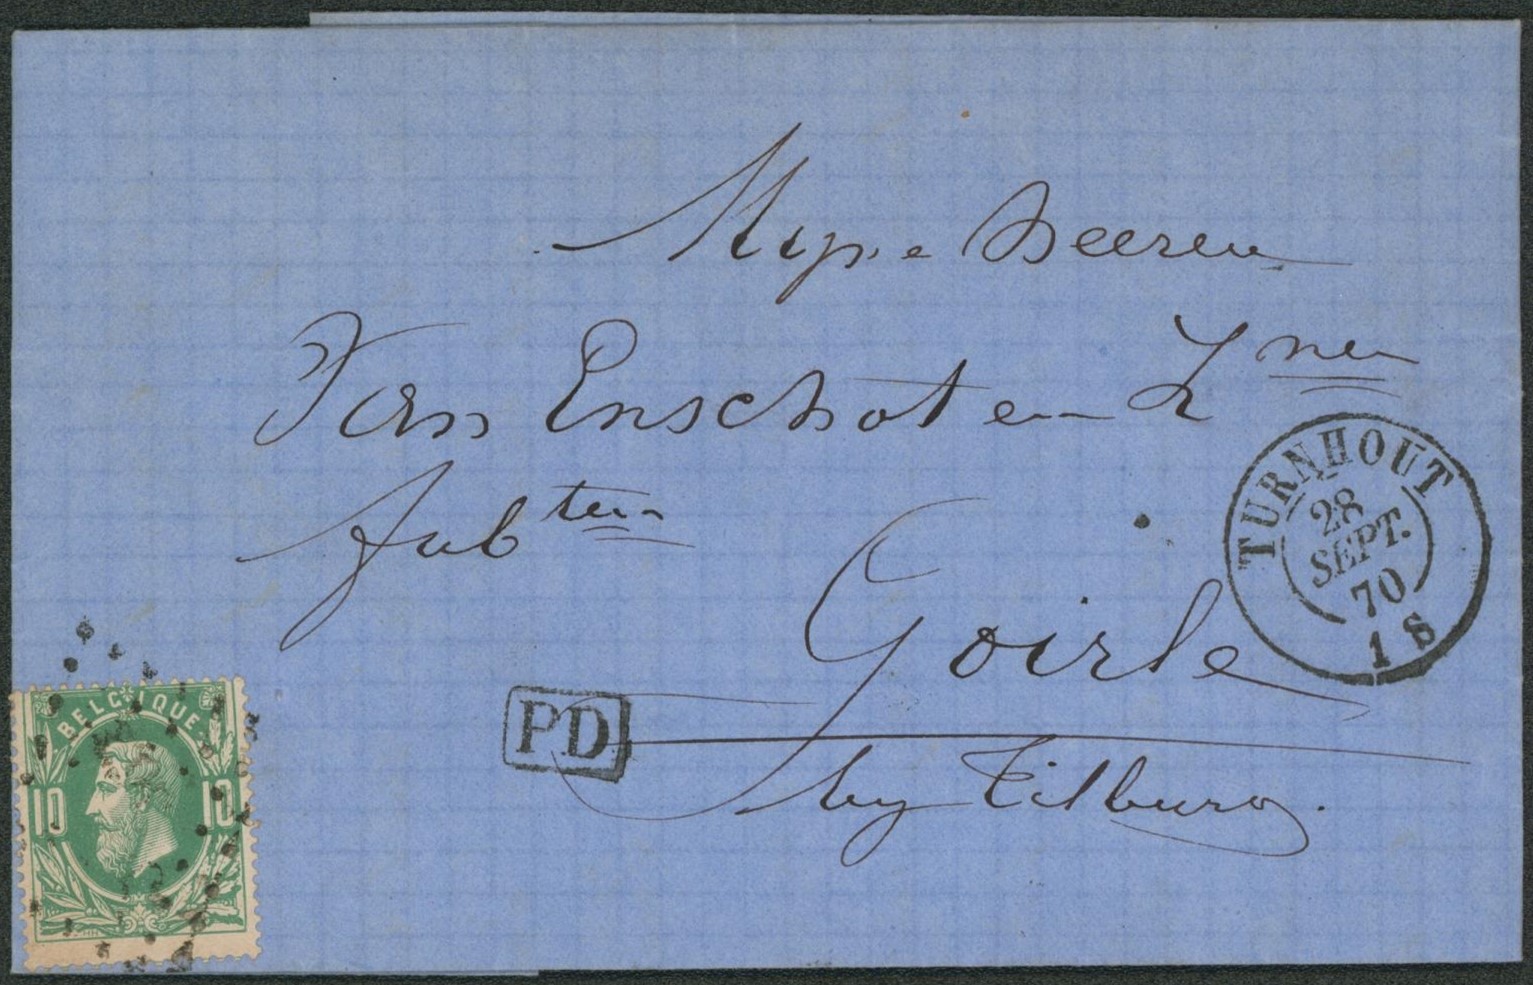 Myne heeren
Van Enschot en Z nen
fab ten
Goirle
by Tilburg.
TURNHOUT
28
SEPT.
70
1 S
PD
BELGIQUE
10 10